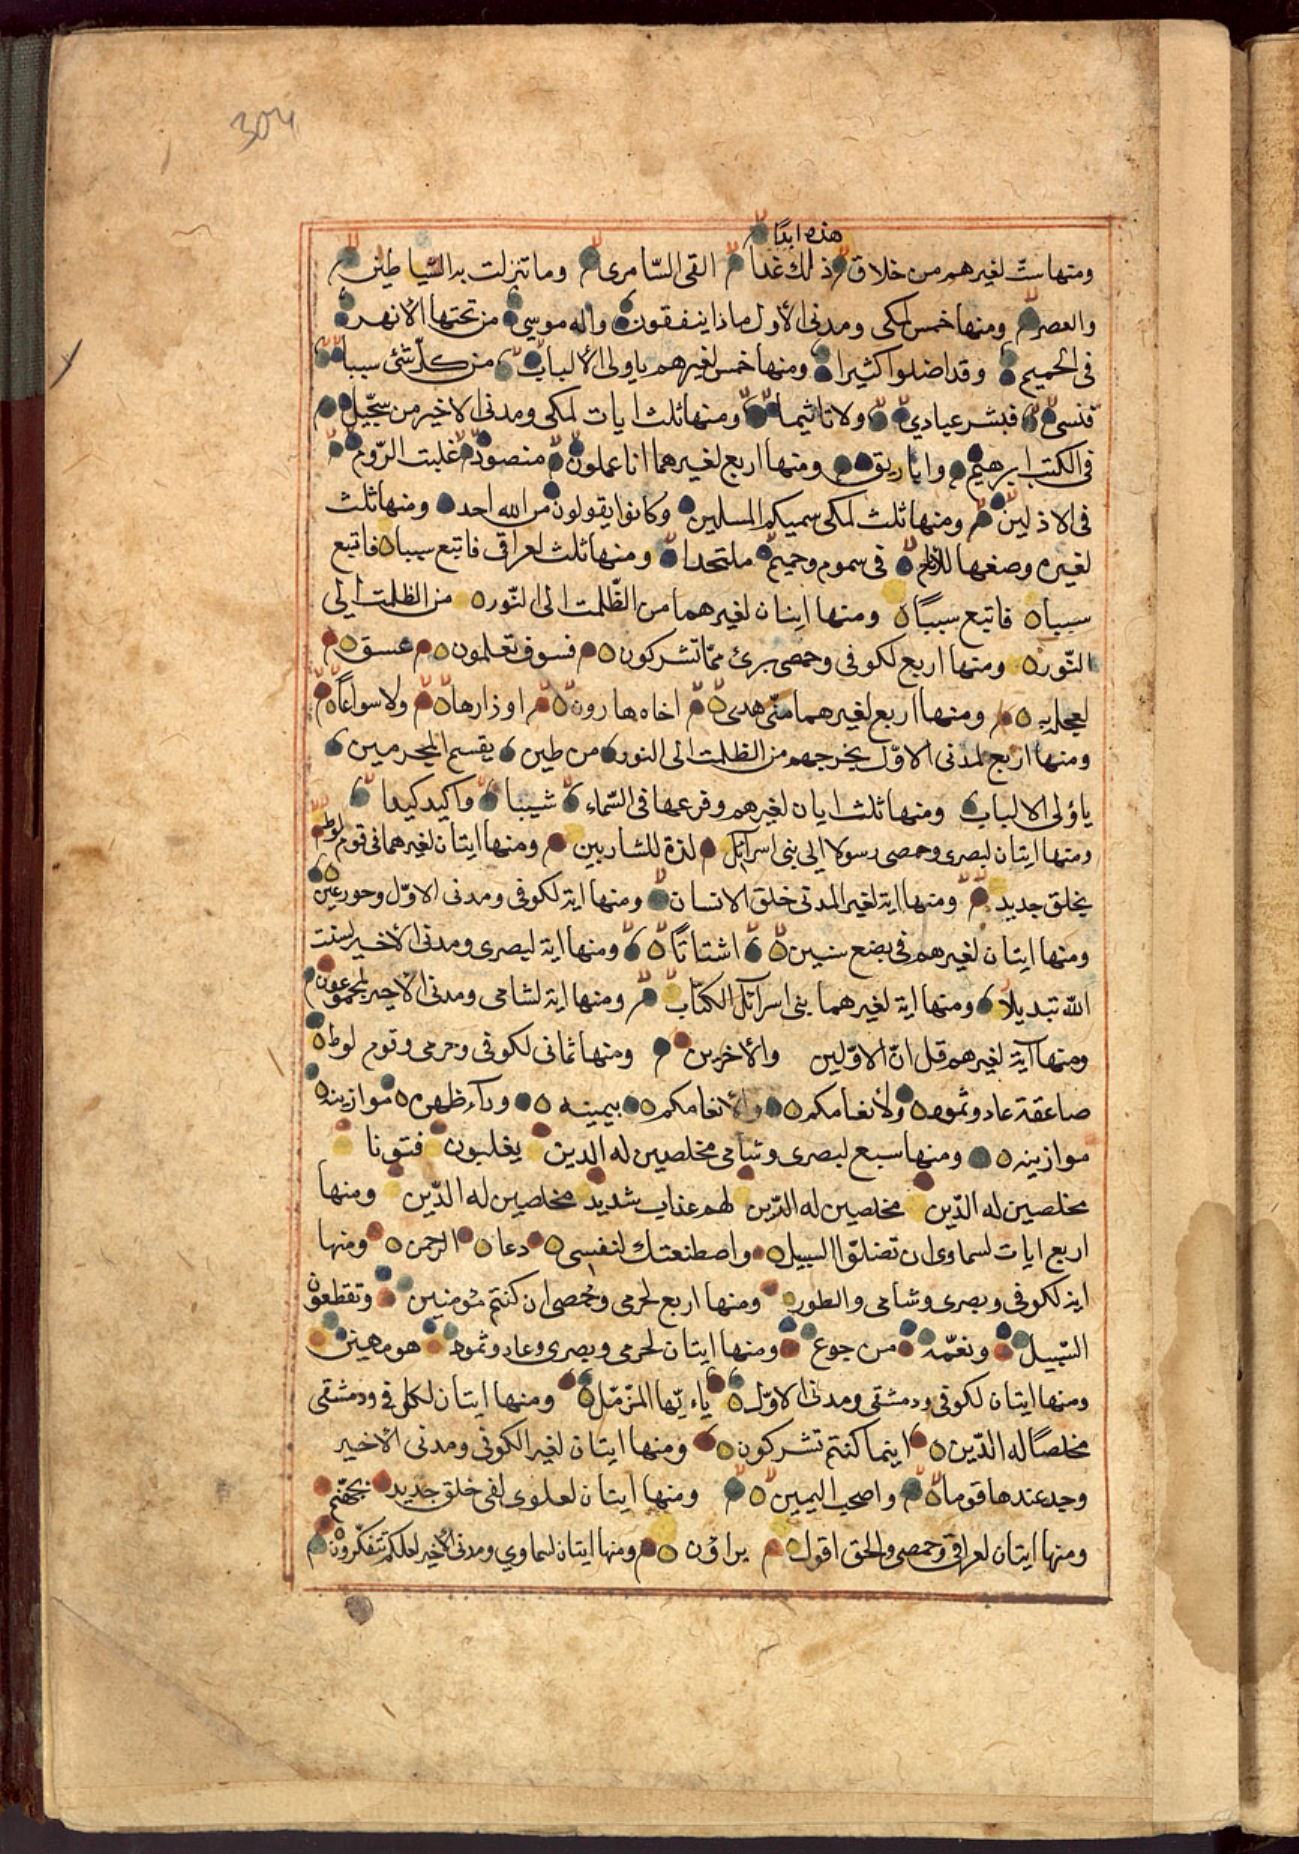 304
هذه ابدًا
ومنها ستّ لغيرهم من خلاق ذلك غدا القى السّامرى وما تنزلت به الشّياطين
والعصر ومنها خمس لمكى ومدنى الأول ماذا ينفقون واله موسى من تحتها الانهر
فى الحميم وقد اضلوا كثيرا ومنها خمس لغيرهم ياولى الألباب من كلّ شئ سببا
فنسى فبشر عبادي ولا تاثيما ومنها ثلث ايات لمكى ومدنى الاخير من سجّيل
فى الكتب ابرهيم واباريق ومنها اربع لغيرهما انا عملون منضود غلبت الرّوم
فى الاذلين ومنها ثلث لمكى سميكم المسلمين وكانوا يقولون من الله احد ومنها ثلث
لغيره وضعها للانام فى سموم وحميم ملتحدا ومنها ثلث لعراقى فاتبع سببا فاتبع
سببا فاتبع سببًا ومنها ايتان لغيرهما من الظّلمت الى النّور من الظلمت الى
النّور ومنها اربع لكوفى وحمصى برئ ممّا تشركون فسوف تعلمون عسق
لعجل به ومنها اربع لغيرهما منّى هدى اخاه هارون اوزارها ولا سواعًا
ومنها اربع لمدنى الاوّل يخرجهم من الظلمت الى النور من طين يقسم المجرمين
ياؤلى الالباب ومنها ثلث ايات لغيرهم وفرعها فى السّماء شيبا واكيد كيدا
ومنها ايتان لبصرى وحمصى رسولا الى بنى اسرائل لذة للشاربين ومنها ايتان لغيرهما فى قوم لوط
بخلق جديد ومنها اية لغير المدنى خلق الانسان ومنها اية لكوفى ومدنى الاوّل وحور عين
ومنها ايتان لغيرهم فى بضع سنين اشتاتًا ومنها اية لبصرى ومدنى الأخير لسنت
الله تبديلا ومنها اية لغيرهما بنى اسرائل الكتاب ومنها اية لشامى ومدنى الأخير لمجموعون
ومنها آية لغيرهم قل انّ الاوّلين والأخرين ومنها ثمانى لكوفى وحرمى وقوم لوط
صاعقة عاد وثمود ولأنعامكم ولأنعامكم بيمينه وراء ظهره موازينه
موازينه ومنها سبع لبصرى وشامى مخلصين له الدين يغلبون فتونا
مخلصين له الدّين مخلصين له الدّين لهم عذاب شديد مخلصين له الدّين ومنها
اربع ايات لسماوى ان تضلّوا السبيل واصطنعتك لنفسى دعان الرحمن ومنها
اية لكوفى وبصرى وشامى والطور ومنها اربع لحرمى وحمصى ان كنتم مؤمنين وتقطعون
السّبيل ونعمّة من جوع ومنها ايتان لحرمى وبصرى وعاد وثمود هو مهين
ومنها ايتان لكوفى ودمشقى ومدنى الاوّل ياءيّها المزّمّل ومنها ايتان لكوفى ودمشقى
مخلصًا له الدّين اينما كنتم تشركون ومنها ايتان لغير الكوفى ومدنى الأخير
وجد عندها قوما واصحب اليمين ومنها ايتان لعلوى لفى خلق جديد بجهنّم
ومنها ايتان لعراقى وحمصى والحق اقول يراؤن ومنها ايتان لسماوي ومدنى الأخير لعلكم تتفكّرون